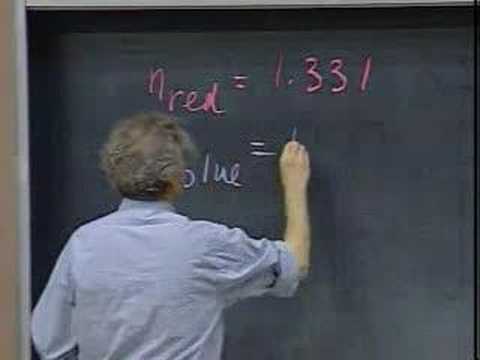 n red = 1.331
blue =